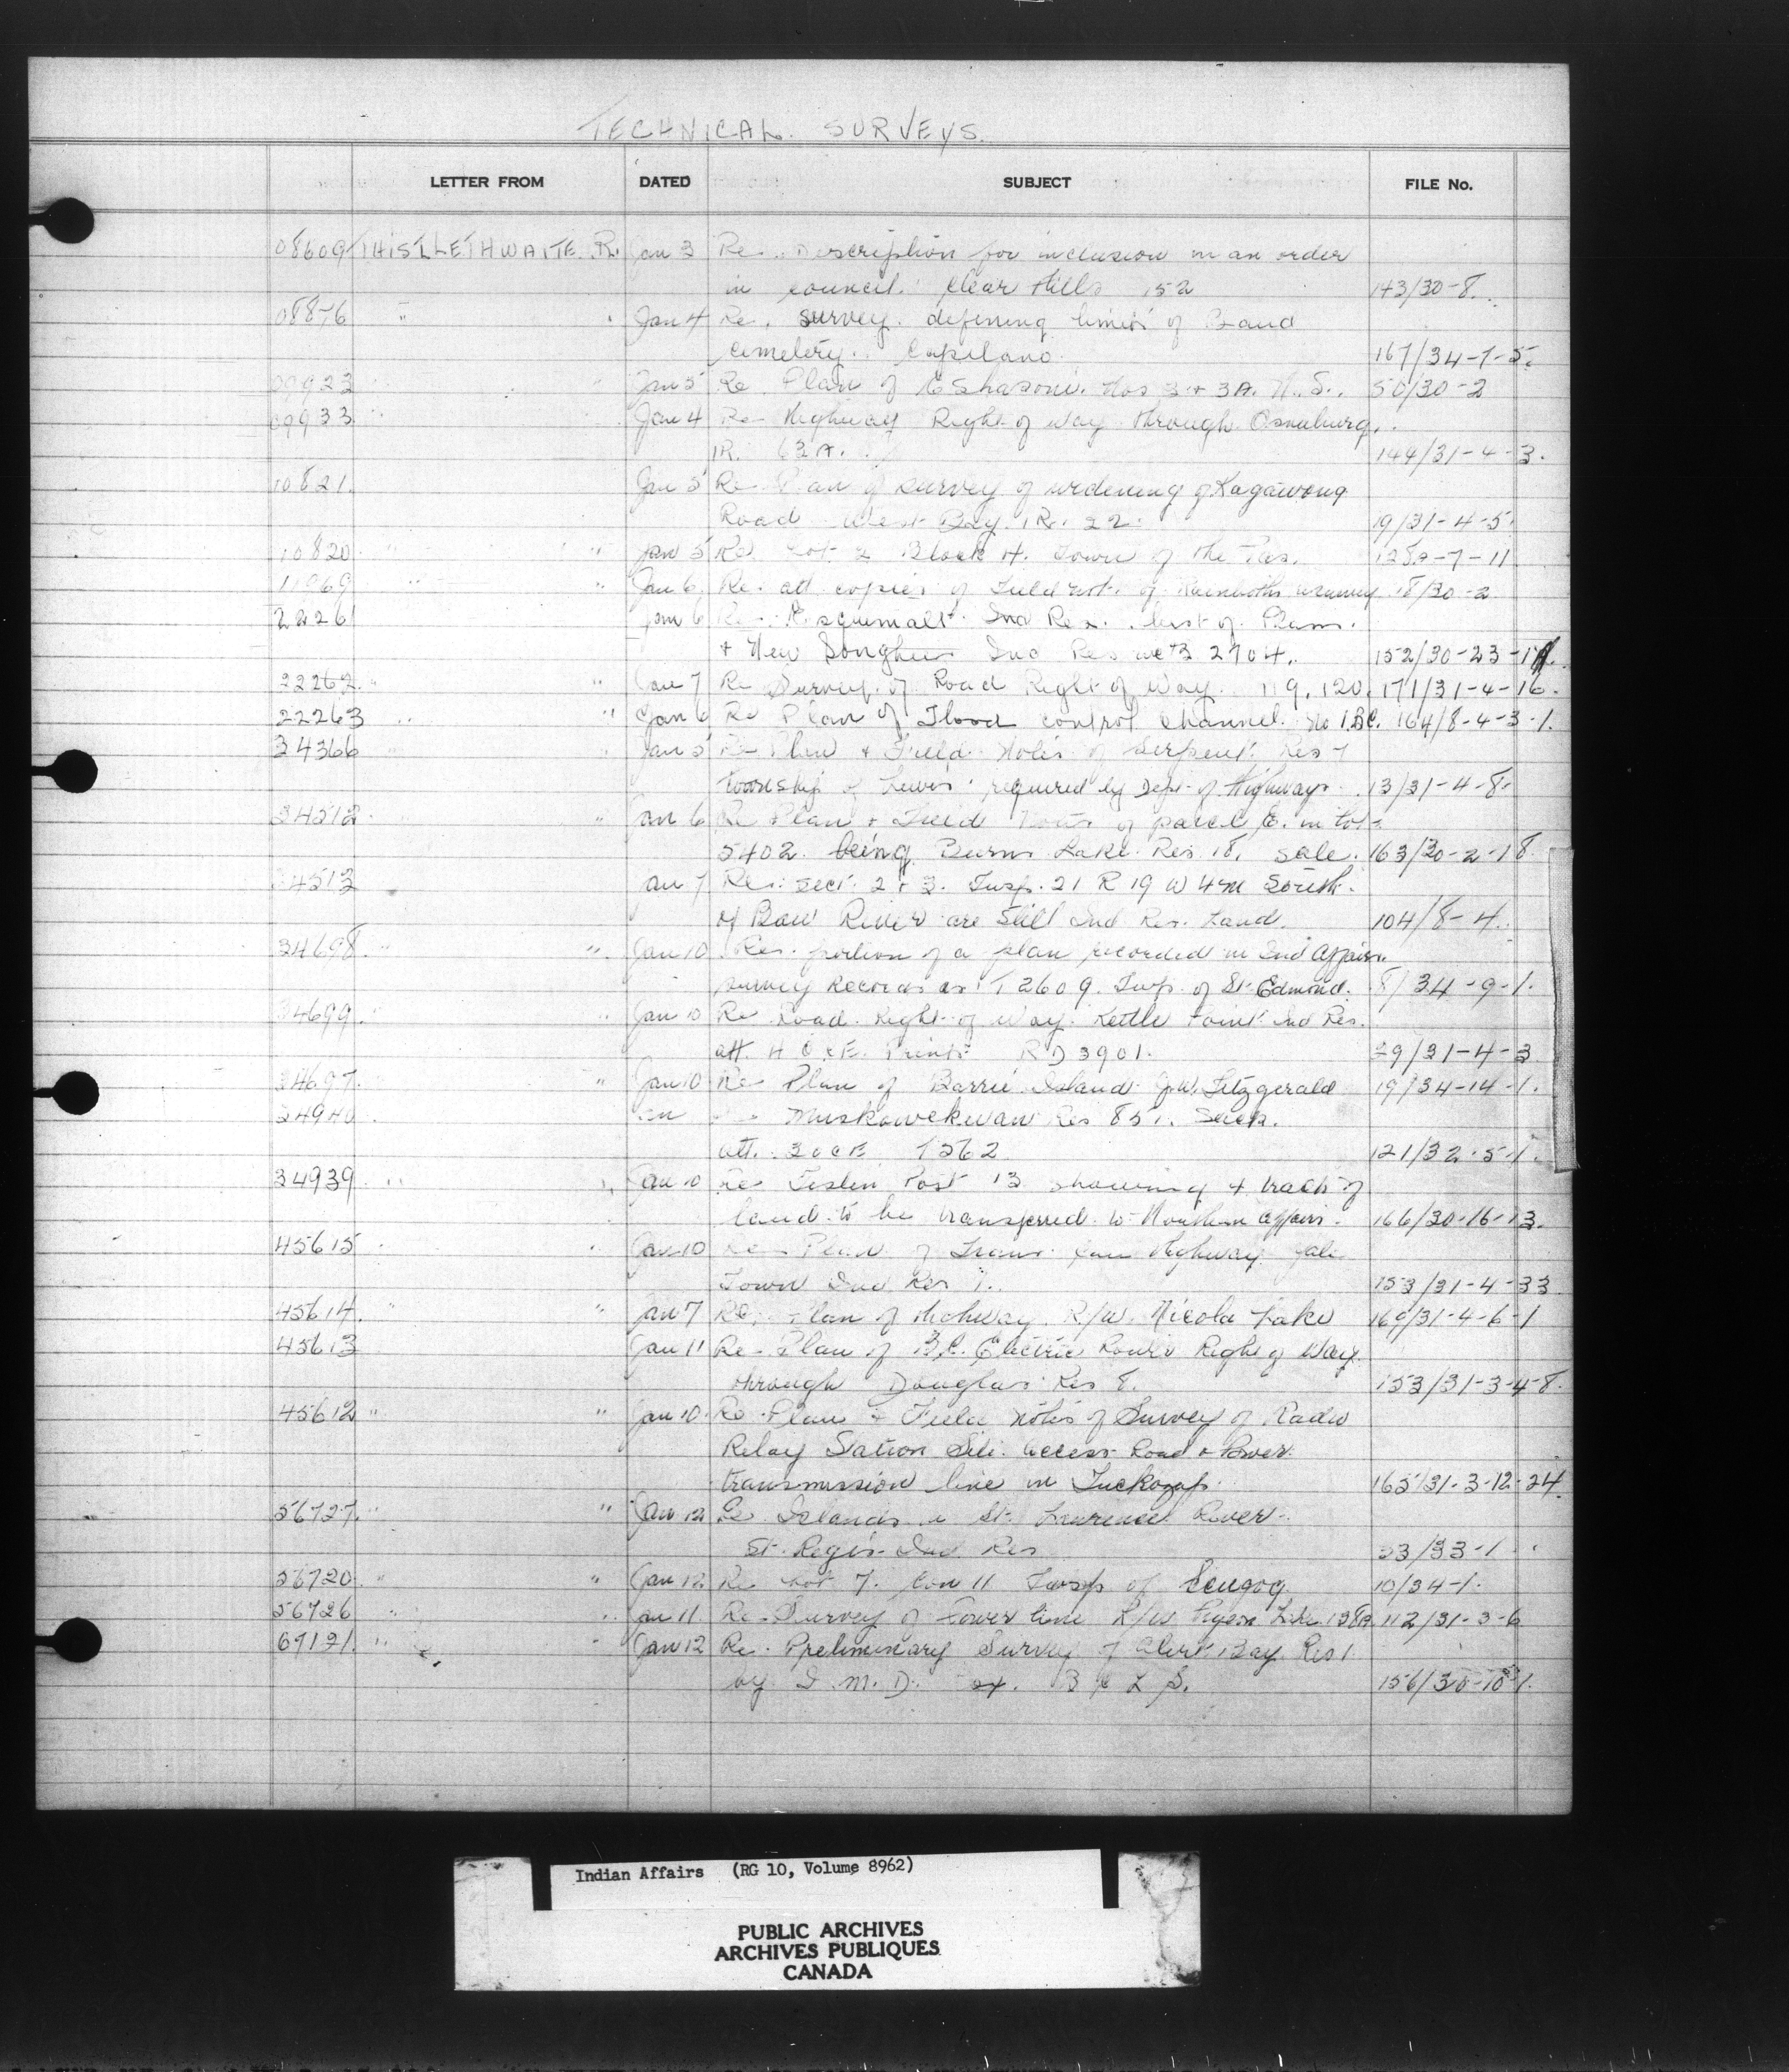 TECHNICAL. SURVEYS.
LETTER FROM DATED SUBJECT FILE No.
08609 THISTLETHWAITE R. Jan 3 Re. Description for inclusion in an order
in council. Clear Hills 152 143/30-8.
08876 " Jan 4 Re. survey. defining limits of Band
cemetery. Capilano. 167/34-7-5.
09923 " Jan 5 Re Plan of Eskasoni. Nos 3 + 3A. N.S. 50/30-2
09933 " Jan 4 Re Highway Right of Way through Osnaburg.
IR. 63A. 144/31-4-3.
10821. Jan 5 Re Plan of survey of widening of Kagawong
Road West Bay IR. 22. 19/31-4-5.
10820 " " Jan 5 Re Lot 2 Block H. Town of The Pas. 128A-7-11
11969 " " Jan 6. Re. att copies of Field notes of survey 8/30-2
Jan 6 Re. Esquimalt Ind Res. List of Plans.
+ New Songhees Ind Res 2704. 152/30-23-1A.
22262. " " Jan 7 Re Survey of Road Right of Way. 119, 120. 171/31-4-16.
22263 " " Jan 6 Re Plan of Flood control channel. No 1. B.C. 164/8-4-3-1.
34366 " " Jan 5 Re Plan + Field Notes of Serpent Res 7
township of Lewis required by Dept of Highways. 13/31-4-8.
34512. " Jan 6 Re Plan + Field Notes of parcel E. in lot
5402. being Burns Lake. Res. 18. sale. 163/30-2-18.
34513 Jan 7 Re. Sect. 2 + 3. Twsp. 21 R 19 W 4M South.
of Bow River are still Ind Res. Land. 104/8-4.
34698. " " Jan 10 Re. portion of a plan recorded in Ind Affairs.
survey Records as T2609. Twp. of St. Edmond. 8/34-9-1.
34699. " " Jan 10 Re Road. Right of Way. Kettle Point Ind Res.
att. Prints RD 3901. 29/31-4-3
34697. " Jan 10 Re Plan of Barrie Island G.W. Fitzgerald 19/34-14-1.
34940 Muskowekwan Res 85. Sask.
att. 121/32-5-1.
34939 " " Jan 10 Re Teslin Post 13 showing + tract of
land to be transferred to Northern Affairs. 166/30-16-13.
45615 Jan 10 Re Plan of Trans Can Highway Yale
Town Ind Res 1. 153/31-4-33
45614. " " Jan 7 Re. Plan of Highway R/W. Nicola Lake 169/31-4-6-1
45613 Jan 11 Re. Plan of B.C. Electric Power Right of Way
through Douglas Res 8. 153/31-3-4-8.
45612 " " Jan 10. Re. Plan + Field Notes of Survey of Radio
Relay Station Site. access Road + Power.
transmission line in 165/31-3-12-24.
56727. " " Jan 12 Re Islands in St. Lawrence River.
St. Regis Ind. Res 23/33-1
56720 " " Jan 12 Re Lot 7. Con 11 Twsp of Scugog. 10/34-1.
56726 " " Jan 11. Re. Survey of Power line R/W Pigeon Lake 138A 112/31-3-6
67121. " " Jan 12 Re. Preliminary Survey of Alert Bay Res 1
by B C L S. 156/30-10-1.
Indian Affairs (RG 10, Volume 8962)
PUBLIC ARCHIVES
ARCHIVES PUBLIQUES
CANADA